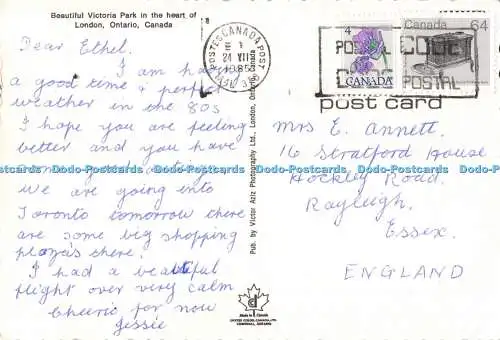 Beautiful Victoria Park in the heart of
London, Ontario, Canada
Dear Ethel.
I am having
a good time & perfect
weather in the 80s
I hope you are feeling
better and you have
some
we are going into
Toronto tomorrow there
are some big shopping
plazas there.
I had a beautiful
flight over very calm
Cheerio for now
Jessie
Pub. by Victor Aziz Photography Ltd., London, Ontario, Canada
POSTES CANADA POST
24 VII
4
CANADA
Canada 64
POSTAL CODE
CODE POSTAL
post card
Mrs E. Annett.
16 Stratford House
Hockley Road.
Rayleigh.
Essex.
ENGLAND
Made in Canada
CORNWALL, ONTARIO
Dodo-Postcards Dodo-Postcards Dodo-Postcards Dodo-Postcards